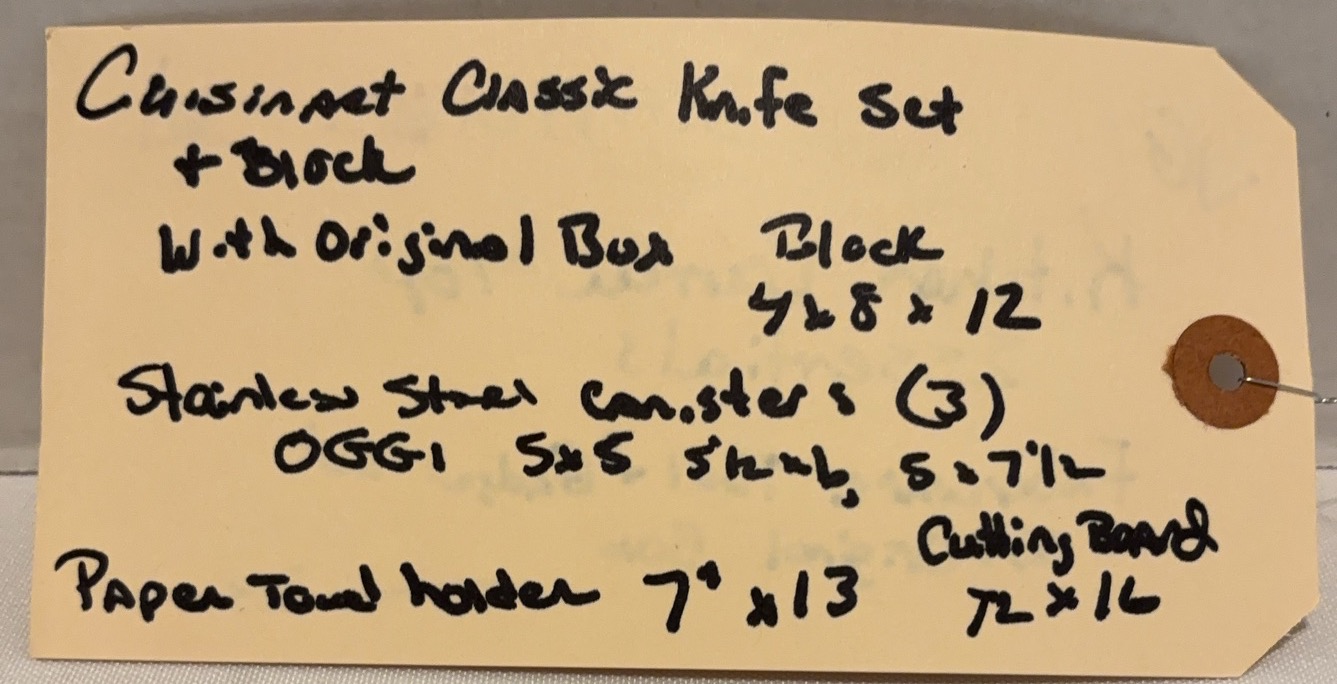 Cuisinart Classic Knife Set
+ Block
With Original Box Block
4 x 8 x 12
Stainless Steel canisters (3)
OGGI 5x5 5 1/2 x 6, 5 x 7 1/2
Cutting Board
Paper Towel holder 7" x 13 x 16